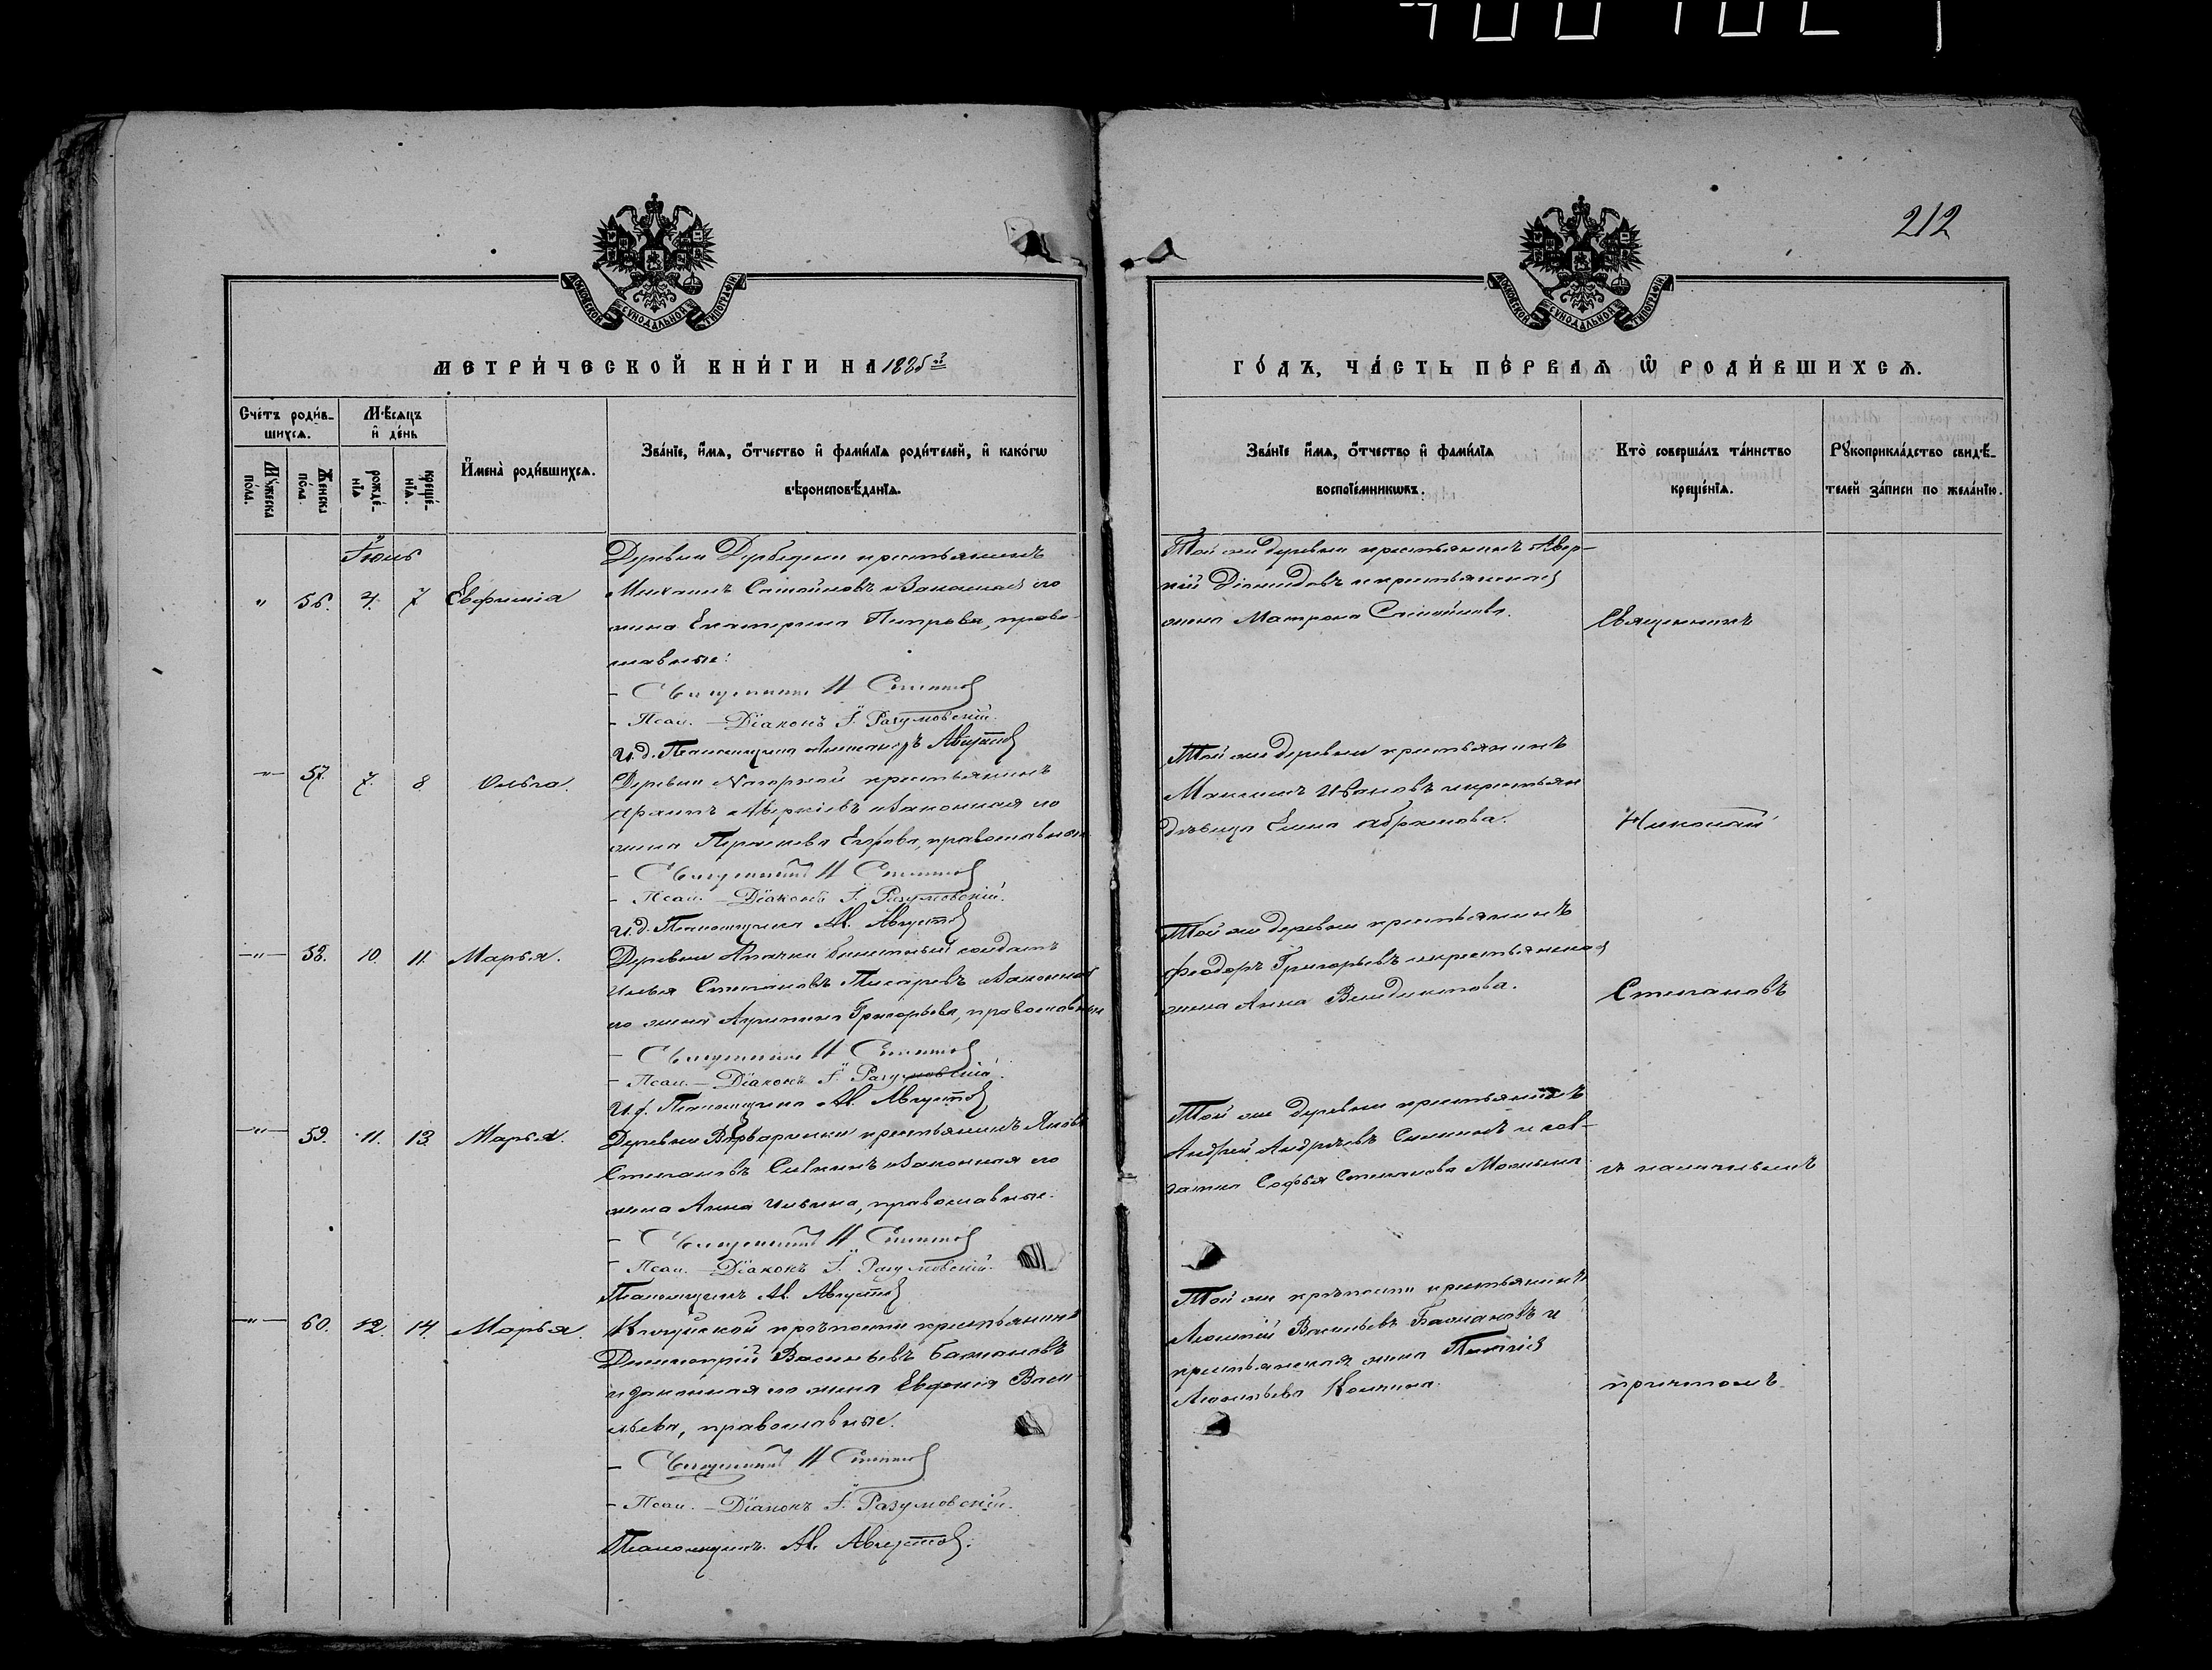 212
МЕТРИ́ЧЕСКОЙ КНИ́ГИ НА 1885й
ГО́ДЪ, ЧА́СТЬ ПЕ́РВАѦ Ѿ РОДИ́ВШИХСѦ.
Сче́тъ роди́в-
шихсѧ.
Мꙋжеска по́ла.
Же́нска по́ла.
Мѣ́сѧцъ
и҆ де́нь
рожде́-
нїѧ
креще́-
нїѧ.
И҆мена̀ роди́вшихсѧ.
Зва́нїе, и҆́мѧ, ѻ҆́тчество и҆ фами́лїѧ роди́телей, и҆ како́гѡ
вѣроисповѣ́данїѧ.
Зва́нїе и҆́мѧ, ѻ҆́тчество и҆ фами́лїѧ
воспрїе́мникѡвъ.
Кто̀ соверша́лъ та́инство
креще́нїѧ.
Рꙋкоприкла́дство свидѣ́-
телей за́писи по жела́нїю.
Іюль
" 56. 4. 7 Евфимія
Деревни крестьянинъ
Михаилъ и законная его
жена Екатерина Петрова, право-
славные:
- Священникъ Н Степановъ
- Псал. - Діаконъ І. Разумовскій.
И.д. Псаломщика Александръ Августовъ
Той же деревни крестьянинъ Авер-
кій Діомидовъ и крестьянская
жена Матрона
Священникъ
" 57. 7. 8. Ольга.
Деревни Нагорной крестьянинъ
Аверкіевъ и законная его
жена Параскева Егорова, православные
- Священникъ Н Степановъ
- Псал. - Діаконъ І. Разумовскій.
И.д. Псаломщика Ал. Августовъ
Той же деревни крестьянинъ
Максимъ Ивановъ и крестьян
дѣвица Елена Абрамова.
Николай
" 58. 10. 11. Марья.
Деревни билетный солдатъ
Илья Степановъ Писаревъ и законная
его жена Агрипина Григорьева, православные
- Священникъ Н Степановъ
- Псал. - Діаконъ І. Разумовскій.
И.д. Псаломщика Ал. Августовъ
Той же деревни крестьянинъ
Феодоръ Григорьевъ и крестьянская
жена Анна Венедиктова.
Степановъ
" 59. 11. 13. Марья.
Деревни Варваринки крестьянинъ Яковъ
Степановъ и законная его
жена Анна Ильина, православные.
- Священникъ Н Степановъ
- Псал. - Діаконъ І. Разумовскій.
Псаломщикъ Ал. Августовъ
Той же деревни крестьянинъ
Андрей Андреевъ и сол-
датка Софья Степанова
съ наличнымъ
" 60. 12. 14. Марья.
крѣпости крестьянинъ
Димитрій Васильевъ Бажановъ
и законная его жена Евфимія Васи-
льева, православные.
- Священникъ Н Степановъ
- Псал. - Діаконъ І. Разумовскій.
Псаломщикъ Ал. Августовъ.
Той же крѣпости крестьянинъ
Леонтій Васильевъ Бажановъ и
крестьянская жена
Леонтьева
причтомъ